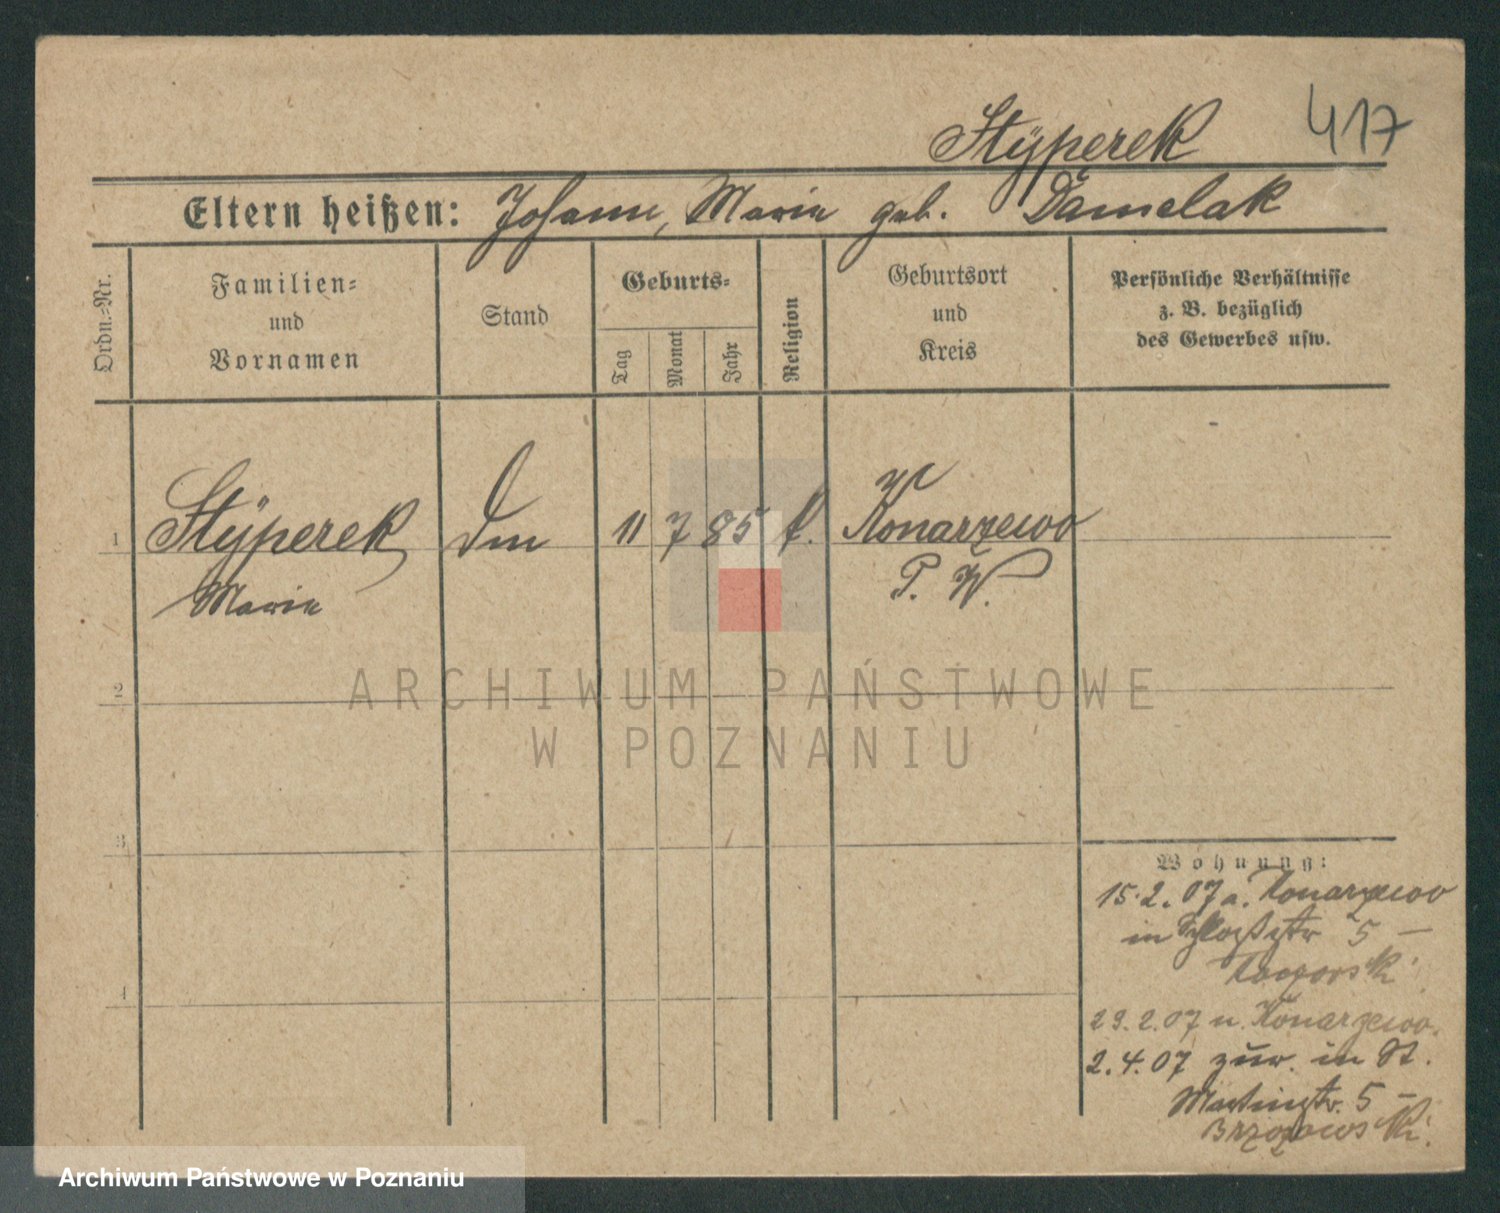 417
Stÿperek
Eltern heißen: Johann, Marie geb. Damelak
Ordn.-Nr.
Familien-
und
Vornamen
Stand
Geburts-
Tag
Monat
Jahr
Religion
Geburtsort
und
Kreis
Persönliche Verhältnisse
z. B. bezüglich
des Gewerbes usw.
1
Stÿperek
Marie
11 7 85 k.
Konarzewo
P. W.
2
3
4
Wohnung:
15.2.07 a. Konarzewo
in Schloßstr 5 –
29.2.07 n. Konarzewo.
2.4.07 zur. in St.
Martinstr. 5 –
Brzozowski.
ARCHIWUM PAŃSTWOWE
W POZNANIU
Archiwum Państwowe w Poznaniu